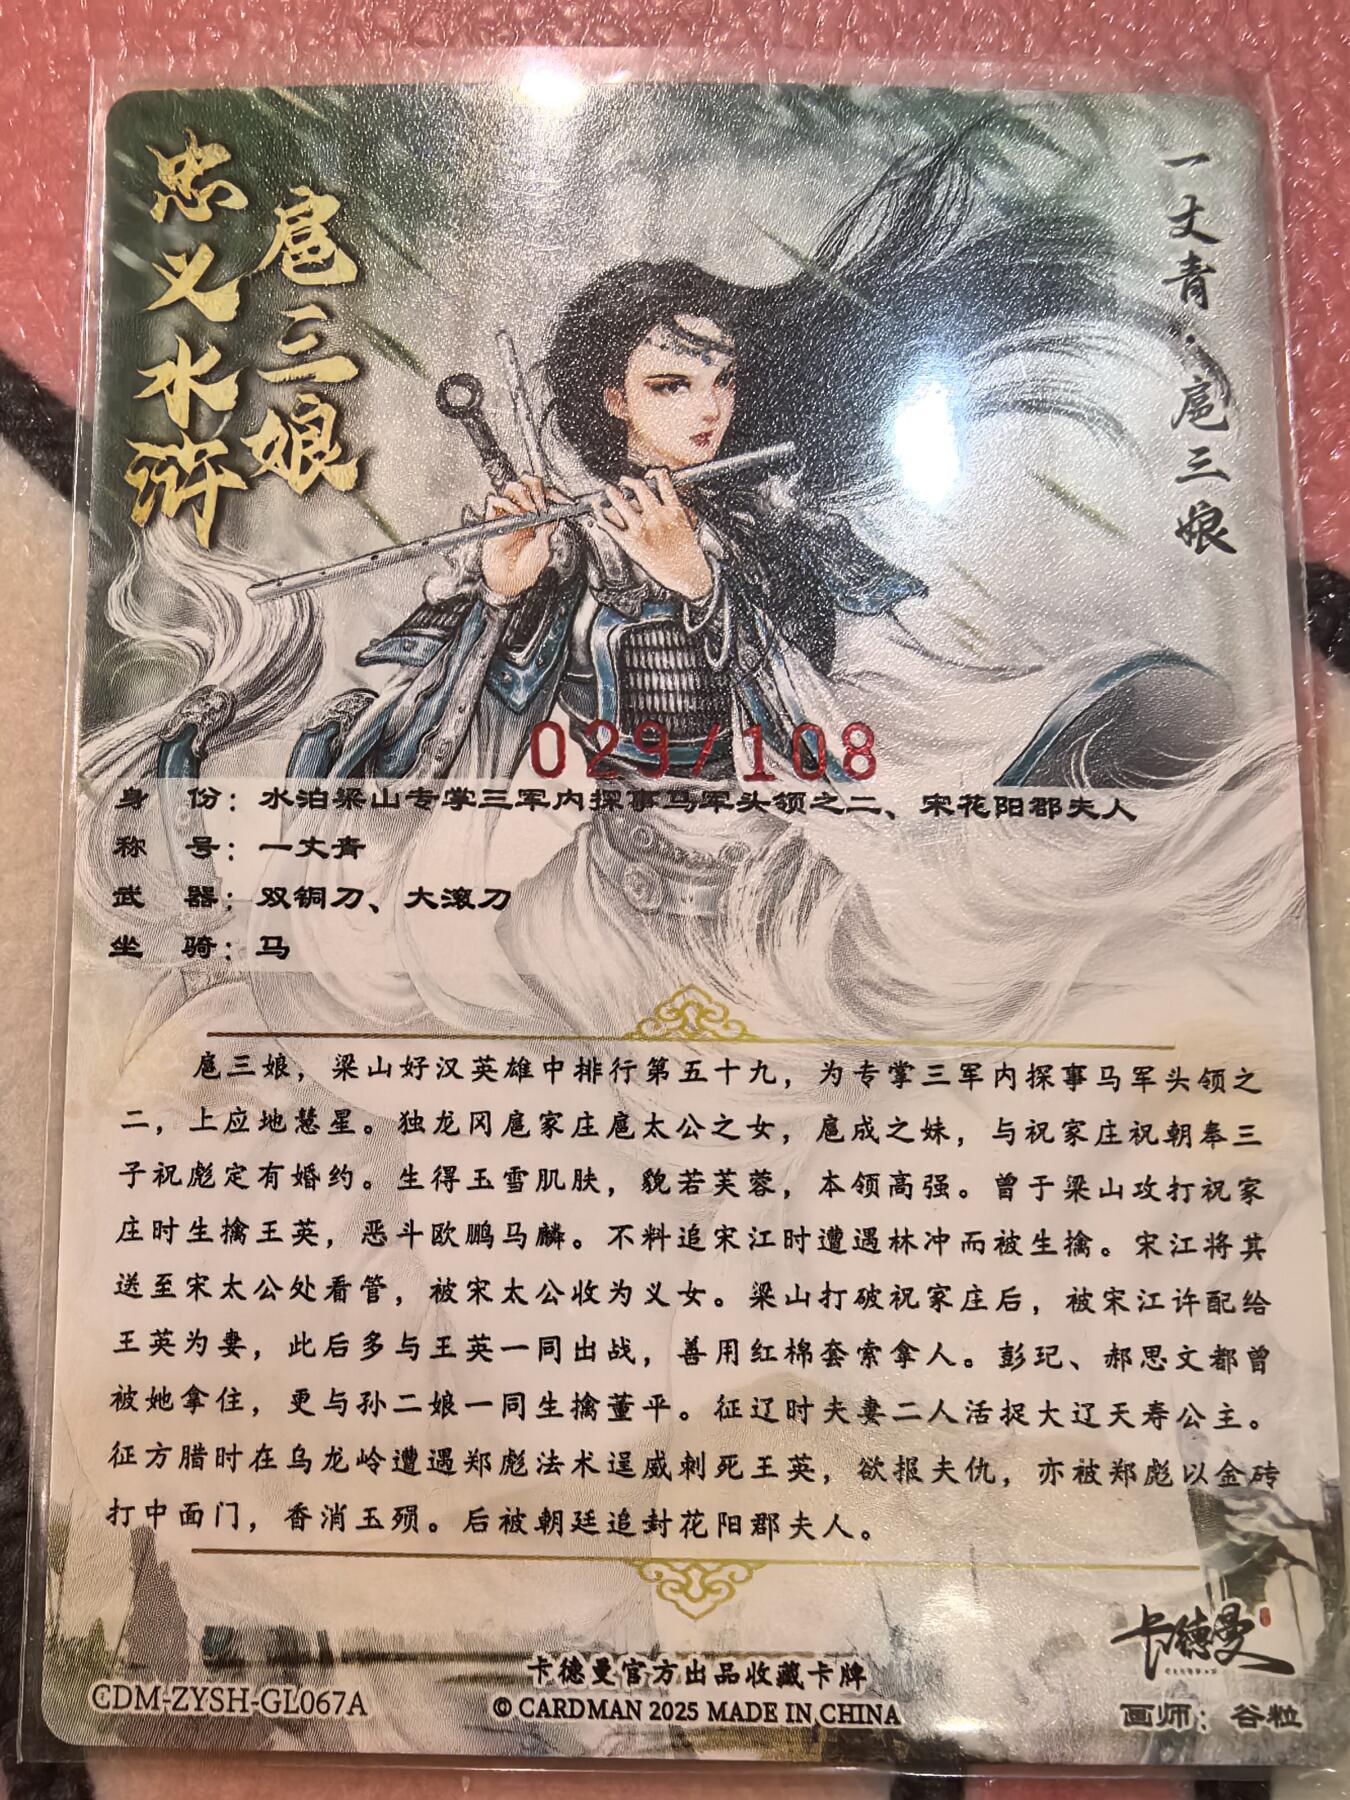 忠义水浒
扈三娘
一丈青·扈三娘
029/108
身 份：水泊梁山专掌三军内探事马军头领之二、宋花阳郡夫人
称 号：一丈青
武 器：双铜刀、大滚刀
坐 骑：马
扈三娘，梁山好汉英雄中排行第五十九，为专掌三军内探事马军头领之
二，上应地慧星。独龙冈扈家庄扈太公之女，扈成之妹，与祝家庄祝朝奉三
子祝彪定有婚约。生得玉雪肌肤，貌若芙蓉，本领高强。曾于梁山攻打祝家
庄时生擒王英，恶斗欧鹏马麟。不料追宋江时遭遇林冲而被生擒。宋江将其
送至宋太公处看管，被宋太公收为义女。梁山打破祝家庄后，被宋江许配给
王英为妻，此后多与王英一同出战，善用红棉套索拿人。彭玘、郝思文都曾
被她拿住，更与孙二娘一同生擒董平。征辽时夫妻二人活捉大辽天寿公主。
征方腊时在乌龙岭遭遇郑彪法术逞威刺死王英，欲报夫仇，亦被郑彪以金砖
打中面门，香消玉殒。后被朝廷追封花阳郡夫人。
卡德曼
卡德曼官方出品收藏卡牌
CDM-ZYSH-GL067A
© CARDMAN 2025 MADE IN CHINA
画师：谷粒